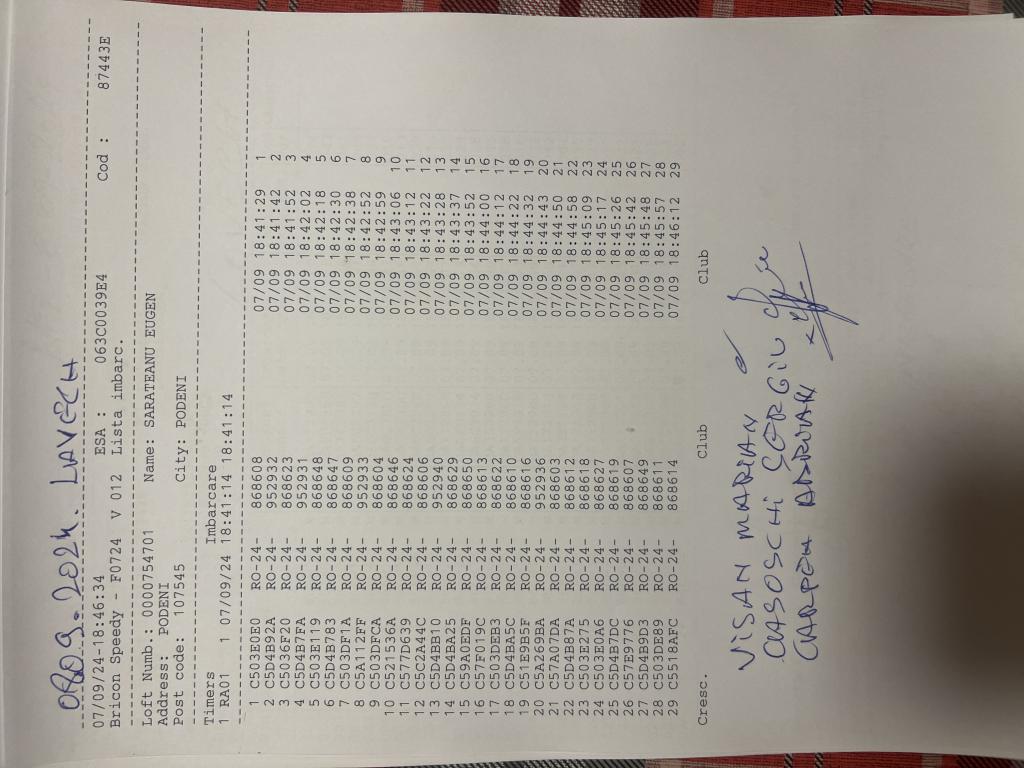 08.09.2024. LAVECH
07/09/24-18:46:34 ESA : 063C0039E4 Cod : 87443E
Bricon Speedy - F0724 V 012 Lista imbarc.
Loft Numb.: 0000754701 Name: SARATEANU EUGEN
Address: PODENI
Post code: 107545 City: PODENI
Timers Imbarcare
1 RA01 1 07/09/24 18:41:14 18:41:14
1 C503E0E0 RO-24- 868608 07/09 18:41:29 1
2 C5D4B92A RO-24- 952932 07/09 18:41:42 2
3 C5036F20 RO-24- 868623 07/09 18:41:52 3
4 C5D4B7FA RO-24- 952931 07/09 18:42:02 4
5 C503E119 RO-24- 868648 07/09 18:42:18 5
6 C5D4B783 RO-24- 868647 07/09 18:42:30 6
7 C503DF1A RO-24- 868609 07/09 18:42:38 7
8 C5A112FF RO-24- 952933 07/09 18:42:52 8
9 C503DFCA RO-24- 868604 07/09 18:42:59 9
10 C521536A RO-24- 868646 07/09 18:43:06 10
11 C577D639 RO-24- 868624 07/09 18:43:12 11
12 C5C2A44C RO-24- 868606 07/09 18:43:22 12
13 C5D4BB10 RO-24- 952940 07/09 18:43:28 13
14 C5D4BA25 RO-24- 868629 07/09 18:43:37 14
15 C59A0EDF RO-24- 868650 07/09 18:43:52 15
16 C57F019C RO-24- 868613 07/09 18:44:00 16
17 C503DEB3 RO-24- 868622 07/09 18:44:12 17
18 C5D4BA5C RO-24- 868610 07/09 18:44:22 18
19 C51E9B5F RO-24- 868616 07/09 18:44:32 19
20 C5A269BA RO-24- 952936 07/09 18:44:43 20
21 C57A07DA RO-24- 868603 07/09 18:44:50 21
22 C5D4B87A RO-24- 868612 07/09 18:44:58 22
23 C503E275 RO-24- 868618 07/09 18:45:09 23
24 C503E0A6 RO-24- 868627 07/09 18:45:17 24
25 C5D4B7DC RO-24- 868619 07/09 18:45:26 25
26 C57E9776 RO-24- 868607 07/09 18:45:42 26
27 C5D4B9D3 RO-24- 868649 07/09 18:45:48 27
28 C503DE89 RO-24- 868611 07/09 18:45:57 28
29 C5518AFC RO-24- 868614 07/09 18:46:12 29
Cresc. Club Club
VISAN MARIAN
CRASOSCHI SERGIU
CARPEN ADRIAN